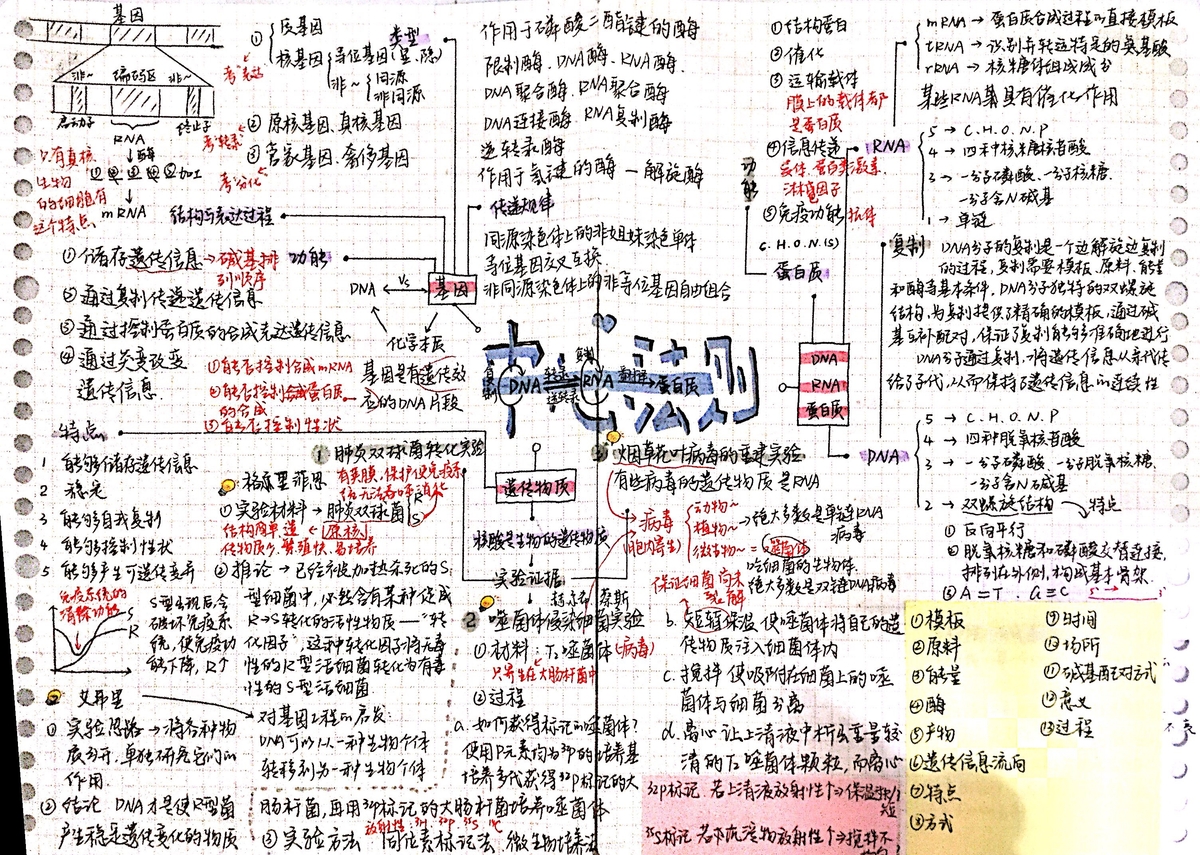 基因
非~ 编码区 非~
启动子 终止子
RNA
↓酶
加工
mRNA
有真核
生物
的细胞有
这个特点
结构与表达过程
类型
① 质基因
核基因 等位基因(显、隐)
非~ 同源
非同源
② 原核基因、真核基因
③ 管家基因、奢侈基因
考"表达"
考"转录"
考"分化"
功能
①储存遗传信息→碱基排
列顺序
②通过复制传递遗传信息
③通过控制蛋白质的合成表达遗传信息
④通过突变改变
遗传信息
①能否控制合成mRNA
②能否控制合成蛋白质
的合成
③能否控制性状
DNA ←VS→ 基因
化学本质
基因是有遗传效
应的DNA片段
作用于磷酸二酯键的酶
限制酶、DNA酶、RNA酶、
DNA聚合酶、RNA聚合酶
DNA连接酶、RNA复制酶
逆转录酶
作用于氢键的酶 — 解旋酶
传递规律
同源染色体上的非姐妹染色单体
等位基因交叉互换
非同源染色体上的非等位基因自由组合
中心法则
复制 DNA 转录 RNA 翻译→蛋白质
逆转录
①结构蛋白
②催化
③运输载体
膜上的载体都
是蛋白质
④信息传递
受体、蛋白类激素
淋巴因子
⑤免疫功能 抗体
功能
C.H.O.N(S)
蛋白质
mRNA → 蛋白质合成过程的直接模板
tRNA → 识别并转运特定的氨基酸
rRNA → 核糖体组成成分
某些RNA具有催化作用
RNA
5 → C.H.O.N.P
4 → 四种核糖核苷酸
3 → 一分子磷酸、一分子核糖、
一分子含N碱基
1 → 单链
复制 DNA分子的复制是一个边解旋边复制
的过程,复制需要模板、原料、能量
和酶等基本条件,DNA分子独特的双螺旋
结构,为复制提供了精确的模板,通过碱
基互补配对,保证了复制能够准确地进行
DNA分子通过复制,将遗传信息从亲代传
给了子代,从而保持了遗传信息的连续性
DNA
RNA
蛋白质
DNA
5 → C.H.O.N.P
4 → 四种脱氧核苷酸
3 → 一分子磷酸、一分子脱氧核糖、
一分子含N碱基
2 → 双螺旋结构 特点
①反向平行
②脱氧核糖和磷酸交替连接,
排列在外侧,构成基本骨架.
③A=T . G≡C
特点
1 能够储存遗传信息
2 稳定
3 能够自我复制
4 能够控制性状
5 能够产生可遗传变异
遗传物质
核酸是生物的遗传物质
实验证据
1 肺炎双球菌转化实验
格里菲思
有荚膜,保护使免疫系
统无法吞噬消化
①实验材料→肺炎双球菌 R
S
结构简单 ← 原核
遗传物质少、繁殖快、易培养
②推论→已经被加热杀死的S
型细菌中,必然含有某种促成
R→S转化的活性物质—"转
化因子",这种转化因子将无毒
性的R型活细菌转化为有毒
性的S型活细菌.
免疫系统的
清除功能
S
R
S型出现后会
破坏免疫系
统,使免疫功
能下降,R↑
艾弗里
① 实验思路→将各种物
质分开,单独研究它们的
作用.
② 结论 DNA才是使R型菌
产生稳定遗传变化的物质
对基因工程的启发:
DNA可以从一种生物个体
转移到另一种生物个体
2 噬菌体侵染细菌实验
①材料:T₂噬菌体(病毒)
只寄生在大肠杆菌中
②过程
a. 如何获得标记的噬菌体?
使用P元素均为³²P的培养基
培养多代获得³²P标记的大
肠杆菌,再用³²P标记的大肠杆菌培养噬菌体
③ 实验方法 同位素标记法、微生物培养法
放射性:³H ³²P ³⁵S ¹⁴C
3 烟草花叶病毒的重建实验
有些病毒的遗传物质是RNA
病毒
(胞内寄生)
动物~
植物~
微生物~ = 噬菌体
→绝大多数是单链RNA
病毒
吃细菌的生物体
绝大多数是双链DNA病毒
保证细菌尚未
裂解
b. 短暂保温 使噬菌体将自己的遗
传物质注入细菌体内
c. 搅拌 使吸附在细菌上的噬
菌体与细菌分离
d. 离心 让上清液中析出重量较
清的T₂噬菌体颗粒,而离心
³²P标记 若上清液放射性↑⇒保温
短
³⁵S标记 若下沉淀物放射性↑⇒搅拌不
①模板
②原料
③能量
④酶
⑤产物
⑥遗传信息流向
⑦特点
⑧方式
⑨时间
⑩场所
⑪碱基配对方式
⑫意义
⑬过程